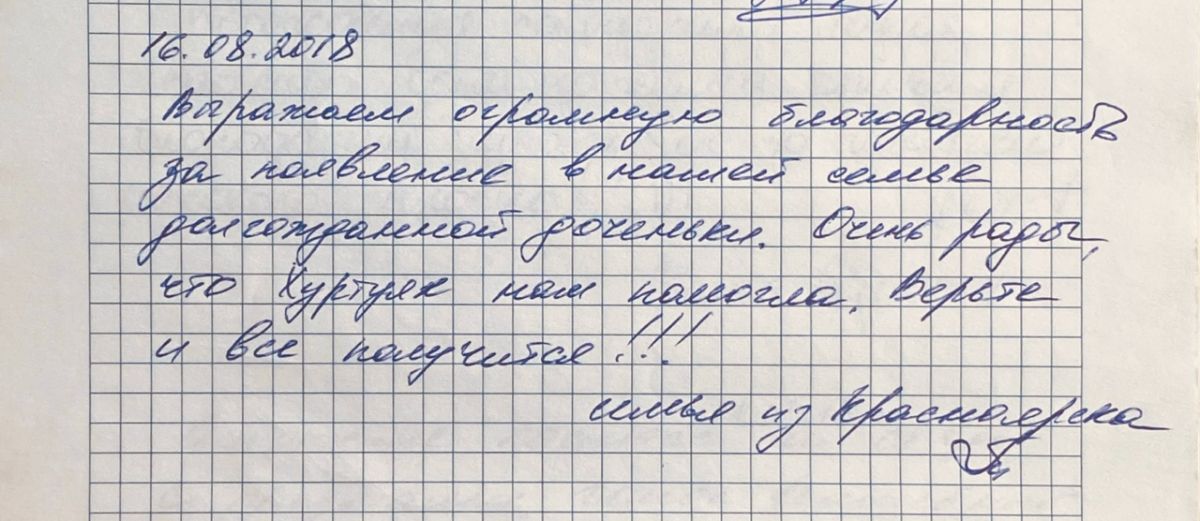 16.08.2018
Выражаем огромную благодарность
за появление в нашей семье
долгожданной доченьки. Очень рады,
что Хуртуях нам помогла. Верьте
и все получится!!!
семья из Красноярска